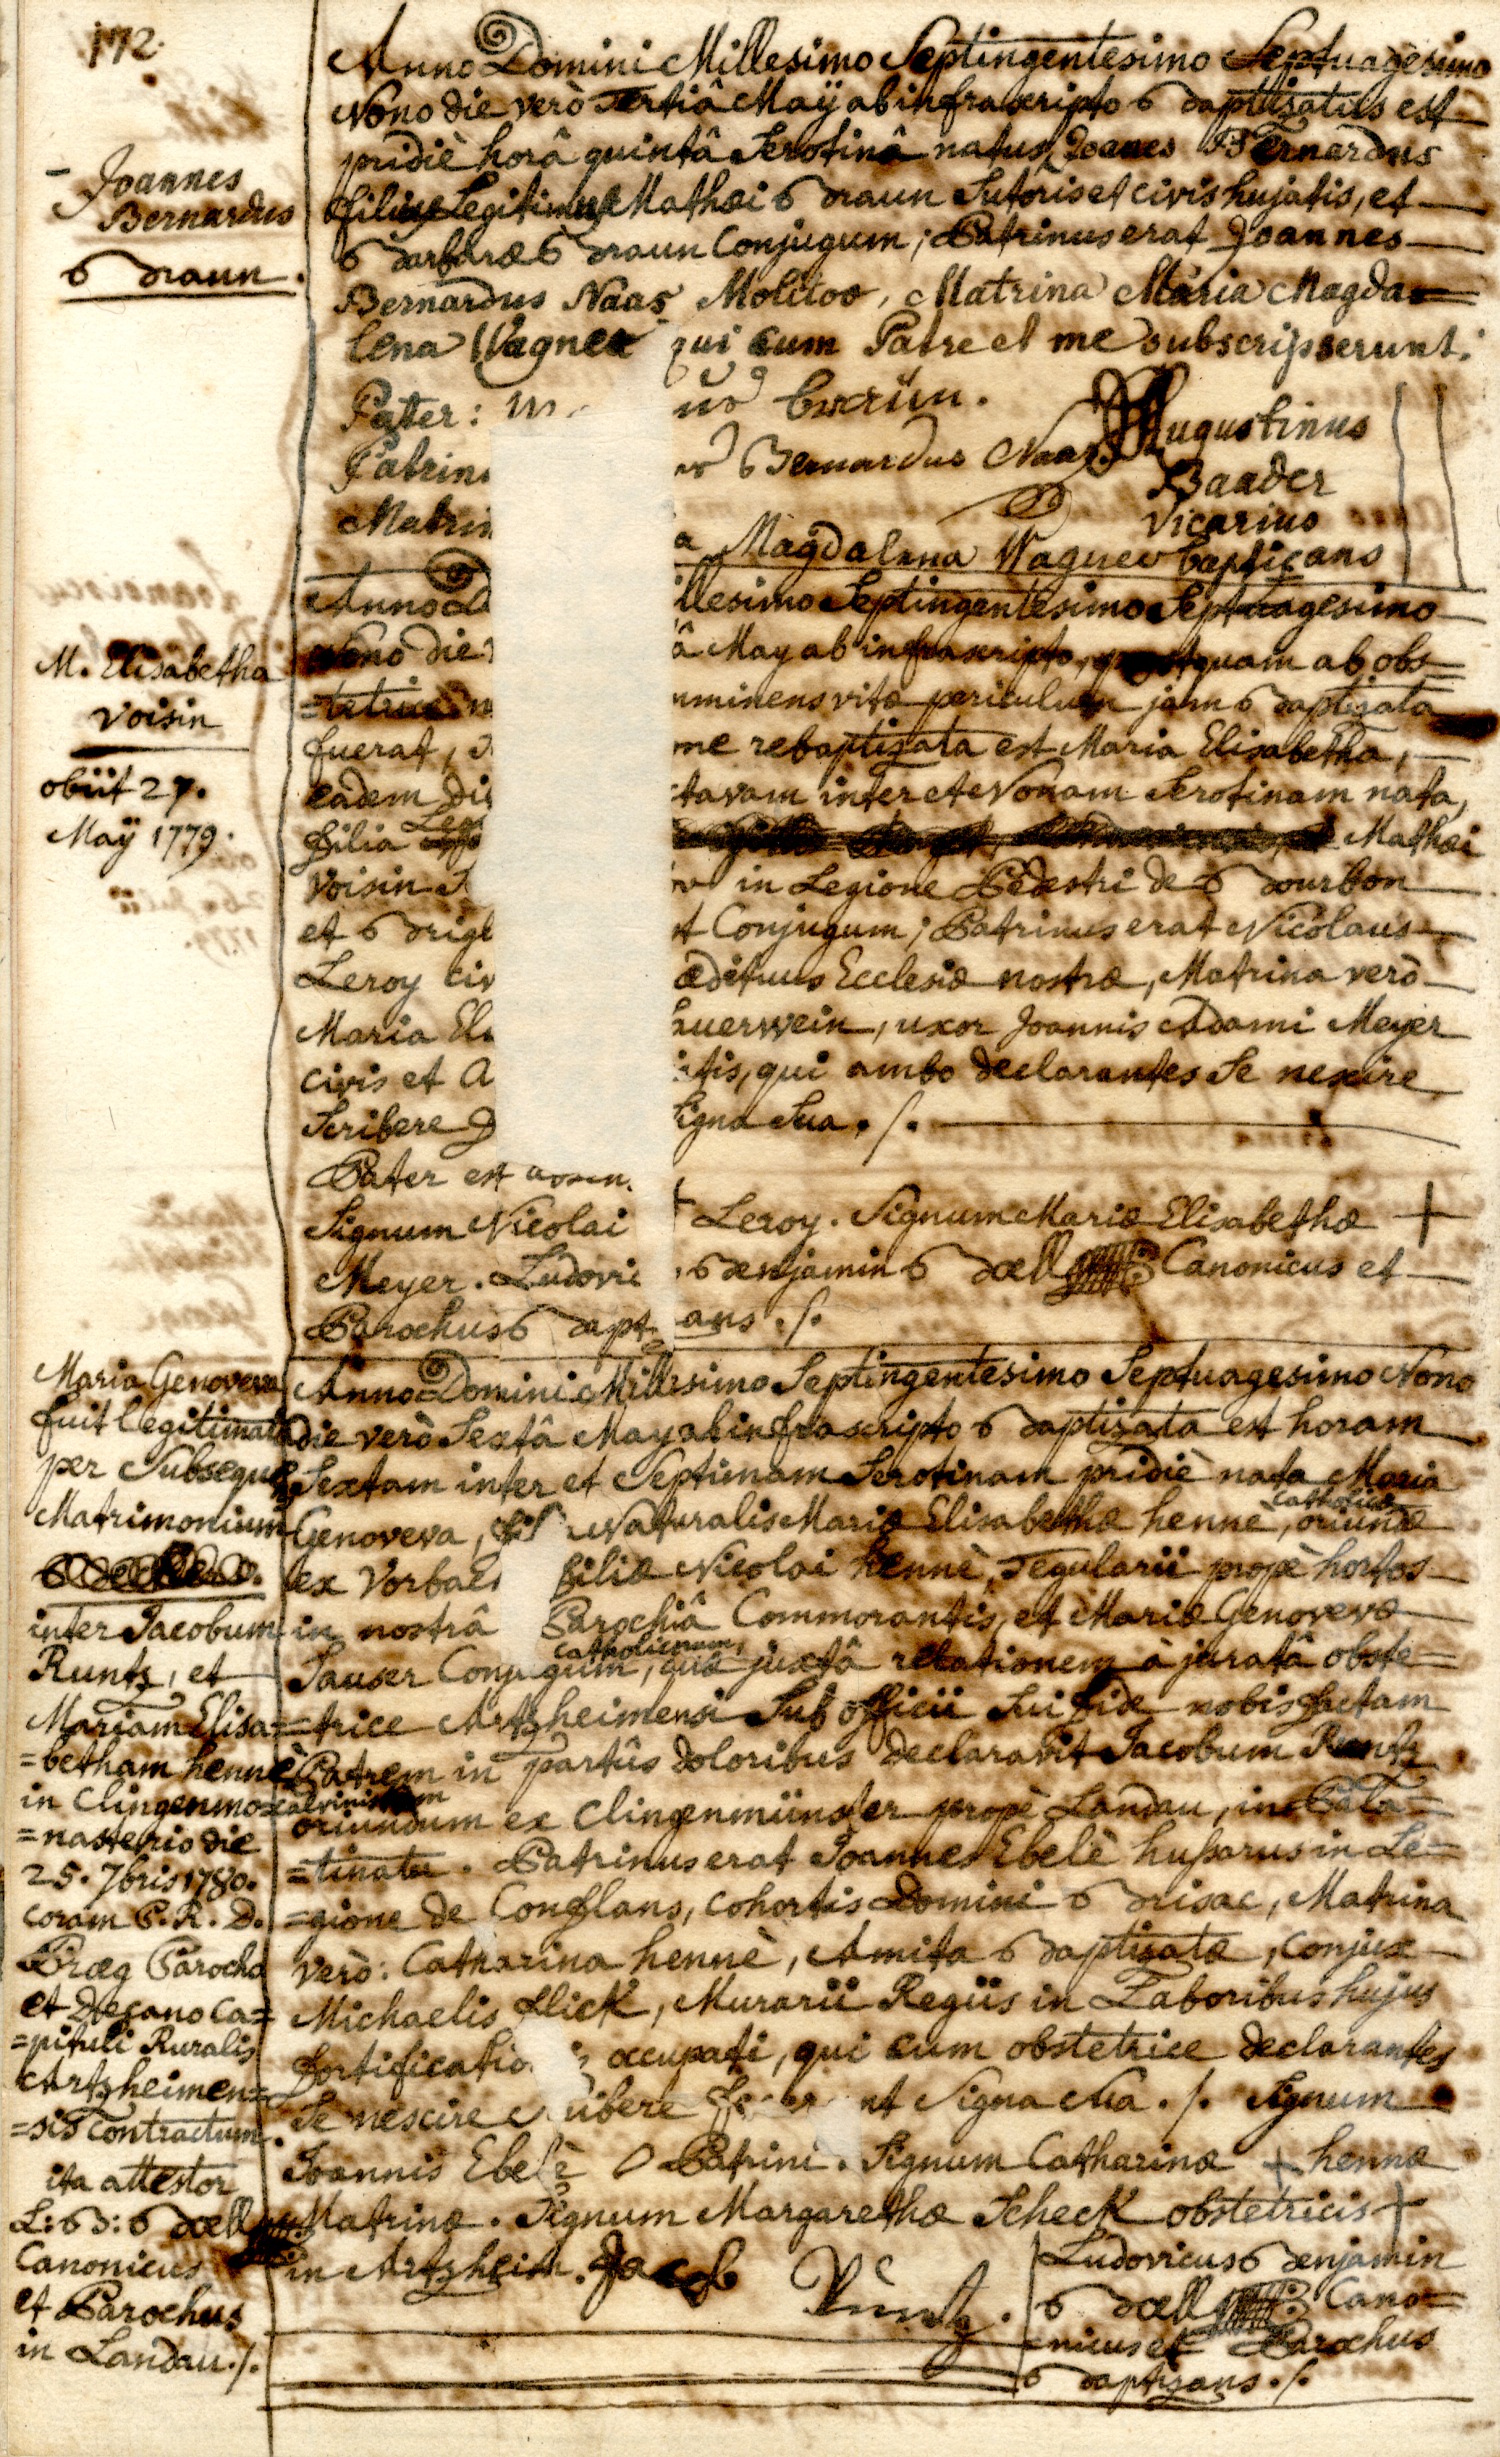 172.
Joannes
Bernardus
Braun.
Anno Domini Millesimo Septingentesimo Septuagesimo
Nono die verò Tertiâ Maÿ ab infrascripto Baptizatus est
pridiè horâ quintâ Serotinâ natus Joanes Bernardus
filius Legitimus Mathæi Braun Sutoris et civis hujatis, et
Barbaræ Braun Conjugum; Patrinus erat Joannes
Bernardus Naas Molitor, Matrina Maria Magda=
lena Wagner qui cum Patre et me subscripserunt.
Pater:
Patrin
Bernardus Naas
Augustinus
Baader
Vicarius
Baptizans
Matrin
a Magdalena Wagner
M. Elisabetha
Voisin
obiit 27.
Maÿ 1779.
Anno D illesimo Septingentesimo Septuagesimo
Nono die â May ab infrascripto, postquam ab obs=
=tetrice mminens vitæ periculum jam Baptizata
fuerat, me rebaptizata est Maria Elisabetha,
eadem die ctavam inter et Nonam Serotinam nata,
filia Leg Mathæi
Voisin in Legione Pedestri de Bourbon
et Brigi t Conjugum; Patrinus erat Nicolaus
Leroy civ ædituus Ecclesiæ nostræ, Matrina verò
Maria El auerwein, uxor Joannis Adami Meyer
civis et a atis, qui ambo declarantes Se nescire
Scribere Signa Sua ./.
Pater est
Signum Nicolai + Leroy. Signum Mariæ Elisabethæ +
Meyer. Ludovi Benjamin Boell Canonicus et
Parochus Bapt ans ./.
Maria Genoveva
fuit legitimata
per Subsequens
Matrimonium
inter Jacobum
Runtz, et
Mariam Elisa=
=betham hennè
in Clingenmo=
=nasterio die
25. 7bris 1780.
coram P. R. D.
Præg Parocho
et Decano Ca=
=pituli Ruralis
Artzheimen=
=sis Contractum.
ita attestor
L: B: Boell
Canonicus
et Parochus
in Landau ./.
Anno Domini Millesimo Septingentesimo Septuagesimo Nono
die verò Sextâ May ab infrascripto Baptizata est horam
Sextam inter et Septimam Serotinam pridiè nata Maria
Genoveva, fil Naturalis Mariæ Elisabethæ henne, catholicæ oriundæ
ex Vorbac filiæ Nicolai hennè, Tegularii propè hortos
in nostrâ Parochiâ Commorantis, et Mariæ Genovevæ
Sauser Conjugum, catholicorum, quæ juxtâ relationem à juratâ obste=
=trice Artzheimensi Sub officii Sui fide nobis factam
Patrem in partûs doloribus declaravit Jacobum Runtz
calvinistam
oriundum ex Clingenmünster propè Landau, in Pala=
=tinatu. Patrinus erat Joannes Ebelè hußarus in Le=
=gione de Conflans, cohortis Domini Brisac, Matrina
verò: Catharina hennè, Amita Baptizatæ, conjux
Michaelis flick, Murarii Regiis in Laboribus hujus
fortificatio occupati, qui cum obstetrice declarantes
Se nescire cribere fecer nt Signa Sua ./. Signum
Joannis Ebelè O Patrini. Signum Catharinæ + hennæ
Matrinæ. Signum Margarethæ Scheck obstetricis +
in Artzheim. Jacob
Rüntz.
Ludovicus Benjamin
Boell Cano=
=nicus et Parochus
Baptizans ./.